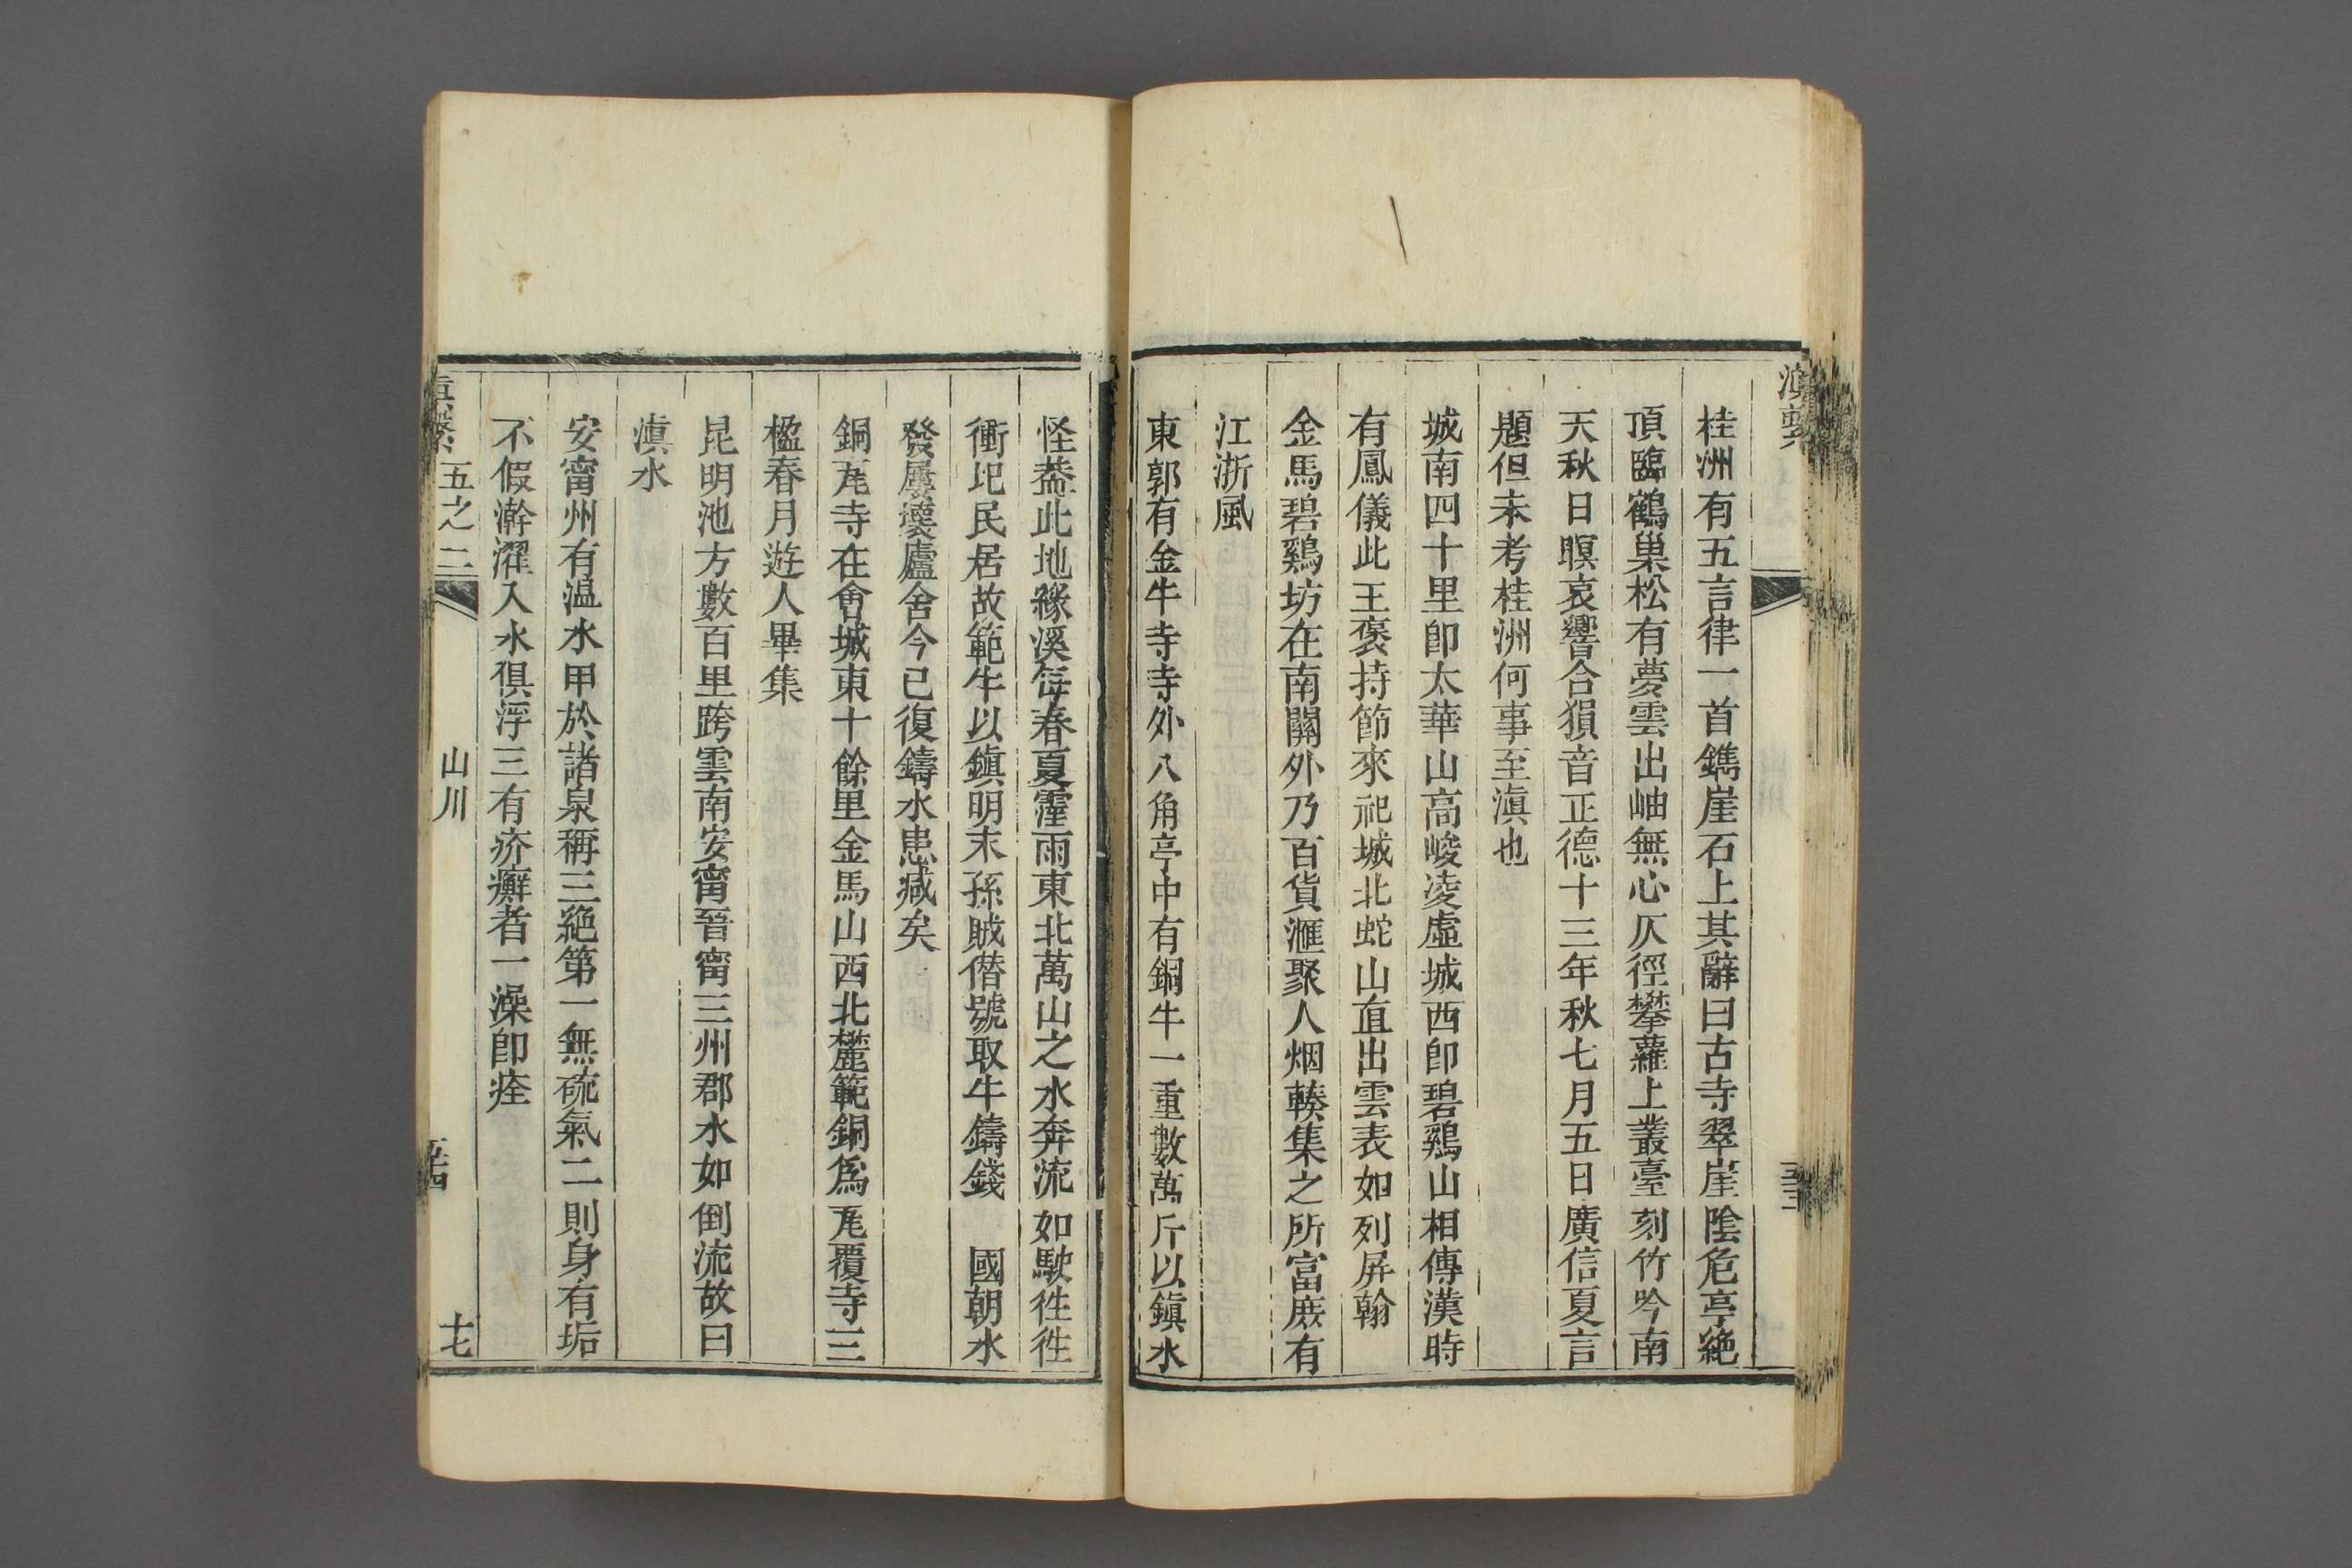 桂洲有五言律一首鐫崖石上其辭曰古寺翠崖陰危亭絶
頂臨鶴巢松有夢雲出岫無心仄徑攀蘿上叢臺刻竹吟南
天秋日暝哀響合猿音正德十三年秋七月五日廣信夏言
題但未考桂洲何事至滇也
城南四十里卽太華山高峻凌虛城西卽碧鷄山相傳漢時
有鳳儀此王褒持節來祀城北蛇山直出雲表如列屏翰
金馬碧鷄坊在南關外乃百貨滙聚人烟輳集之所富庶有
江浙風
東郭有金牛寺寺外八角亭中有銅牛一重數萬斤以鎮水
怪葢此地緣溪每春夏霪雨東北萬山之水奔流如駛徃徃
衝圯民居故範牛以鎮明末孫賊僭號取牛鑄錢　國朝水
發屢壞廬舍今已復鑄水患减矣
銅瓦寺在會城東十餘里金馬山西北麓範銅爲瓦覆寺三
楹春月遊人畢集
昆明池方數百里跨雲南安甯晉甯三州郡水如倒流故曰
滇水
安甯州有温水甲於諸泉稱三絶第一無硫氣二則身有垢
不假澣濯入水俱浮三有疥癬者一澡卽痊
五之二
山川
十七